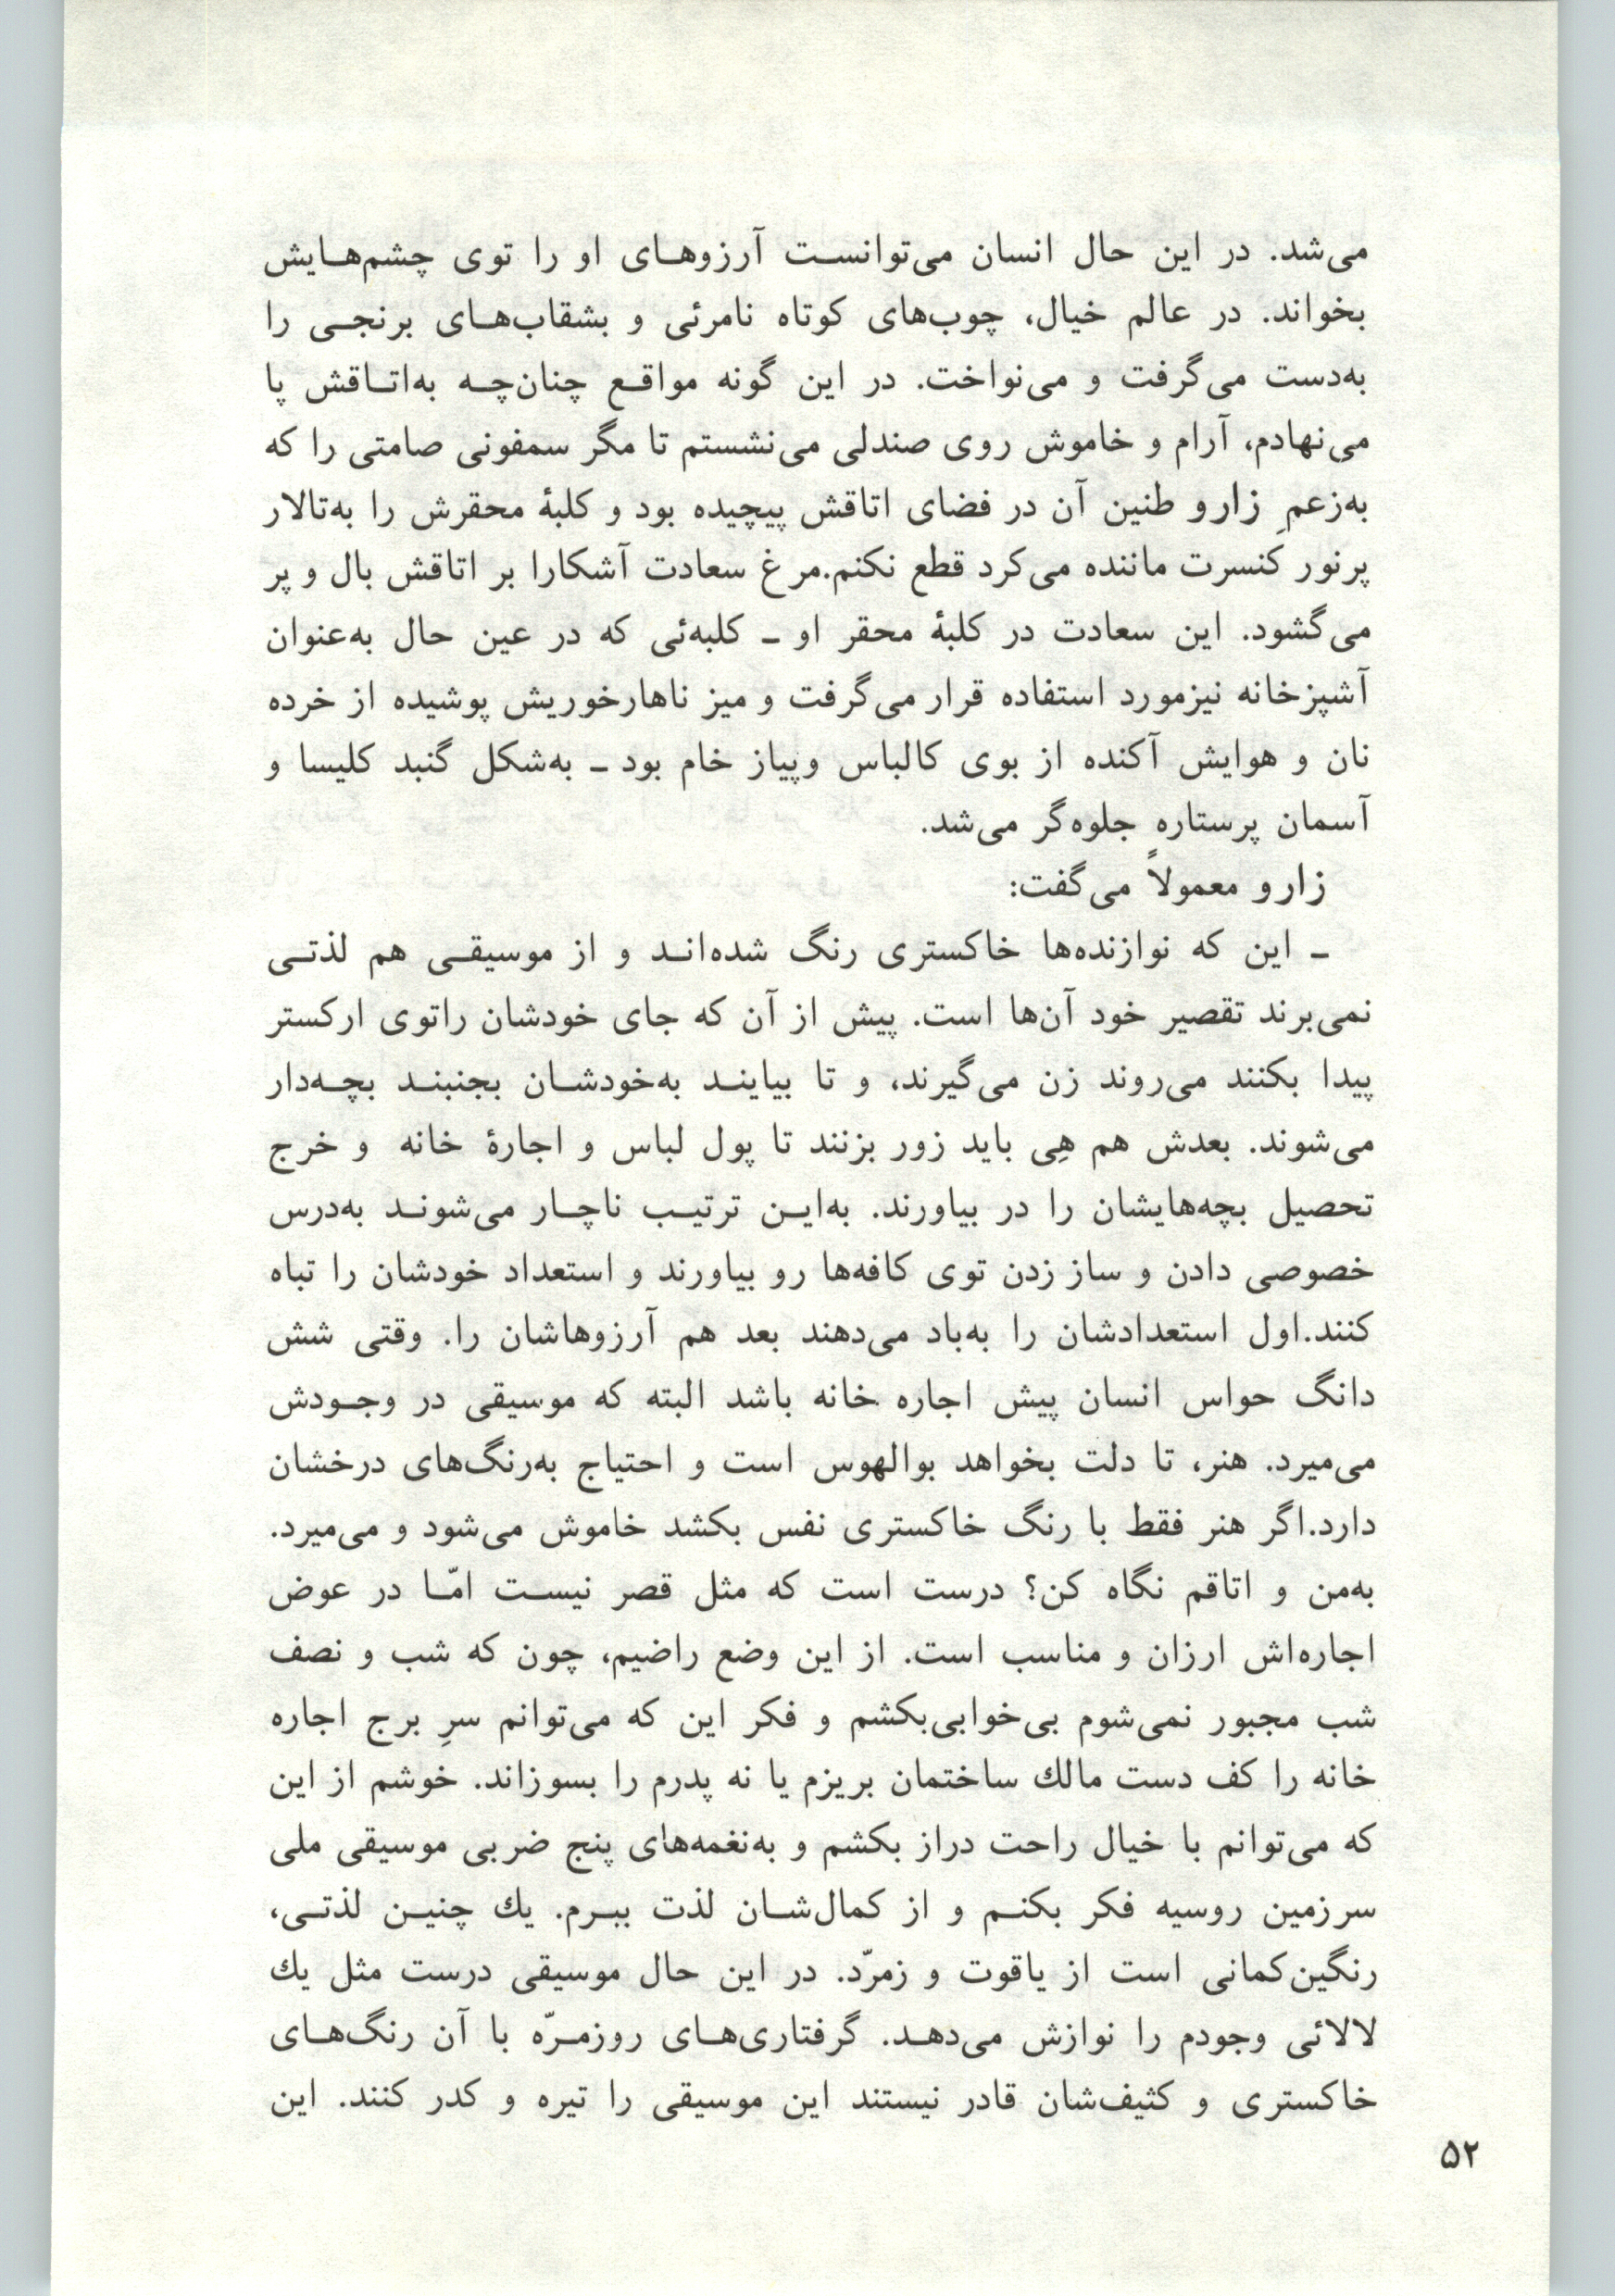 می‌شد. در این حال انسان می‌توانست آرزوهای او را توی چشم‌هایش
بخواند. در عالم خیال، چوب‌های کوتاه نامرئی و بشقاب‌های برنجی را
به‌دست می‌گرفت و می‌نواخت. در این گونه مواقع چنان‌چه به‌اتاقش پا
می‌نهادم، آرام و خاموش روی صندلی می‌نشستم تا مگر سمفونی صامتی را که
به‌زعمِ زارو طنین آن در فضای اتاقش پیچیده بود و کلبهٔ محقرش را به‌تالار
پرنور کنسرت ماننده می‌کرد قطع نکنم.مرغ سعادت آشکارا بر اتاقش بال و پر
می‌گشود. این سعادت در کلبهٔ محقر او ـ کلبه‌ئی که در عین حال به‌عنوان
آشپزخانه نیزمورد استفاده قرار می‌گرفت و میز ناهارخوریش پوشیده از خرده
نان و هوایش آکنده از بوی کالباس وپیاز خام بود ـ به‌شکل گنبد کلیسا و
آسمان پرستاره جلوه‌گر می‌شد.
زارو معمولاً می‌گفت:
ـ این که نوازنده‌ها خاکستری رنگ شده‌اند و از موسیقی هم لذتی
نمی‌برند تقصیر خود آن‌ها است. پیش از آن که جای خودشان راتوی ارکستر
پیدا بکنند می‌روند زن می‌گیرند، و تا بیایند به‌خودشان بجنبند بچه‌دار
می‌شوند. بعدش هم هِی باید زور بزنند تا پول لباس و اجارهٔ خانه و خرج
تحصیل بچه‌هایشان را در بیاورند. به‌این ترتیب ناچار می‌شوند به‌درس
خصوصی دادن و ساز زدن توی کافه‌ها رو بیاورند و استعداد خودشان را تباه
کنند.اول استعدادشان را به‌باد می‌دهند بعد هم آرزوهاشان را. وقتی شش
دانگ حواس انسان پیش اجاره خانه باشد البته که موسیقی در وجودش
می‌میرد. هنر، تا دلت بخواهد بوالهوس است و احتیاج به‌رنگ‌های درخشان
دارد.اگر هنر فقط با رنگ خاکستری نفس بکشد خاموش می‌شود و می‌میرد.
به‌من و اتاقم نگاه کن؟ درست است که مثل قصر نیست امّا در عوض
اجاره‌اش ارزان و مناسب است. از این وضع راضیم، چون که شب و نصف
شب مجبور نمی‌شوم بی‌خوابی‌بکشم و فکر این که می‌توانم سرِ برج اجاره
خانه را کف دست مالك ساختمان بریزم یا نه پدرم را بسوزاند. خوشم از این
که می‌توانم با خیال راحت دراز بکشم و به‌نغمه‌های پنج ضربی موسیقی ملی
سرزمین روسیه فکر بکنم و از کمال‌شان لذت ببرم. یك چنین لذتی،
رنگین‌کمانی است از یاقوت و زمرّد. در این حال موسیقی درست مثل یك
لالائی وجودم را نوازش می‌دهد. گرفتاری‌های روزمرّه با آن رنگ‌های
خاکستری و کثیف‌شان قادر نیستند این موسیقی را تیره و کدر کنند. این
۵۲